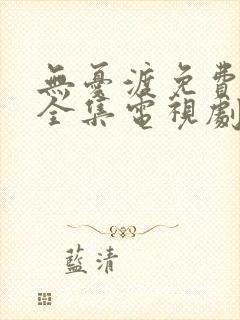 無憂渡免費
全集電視劇
藍清